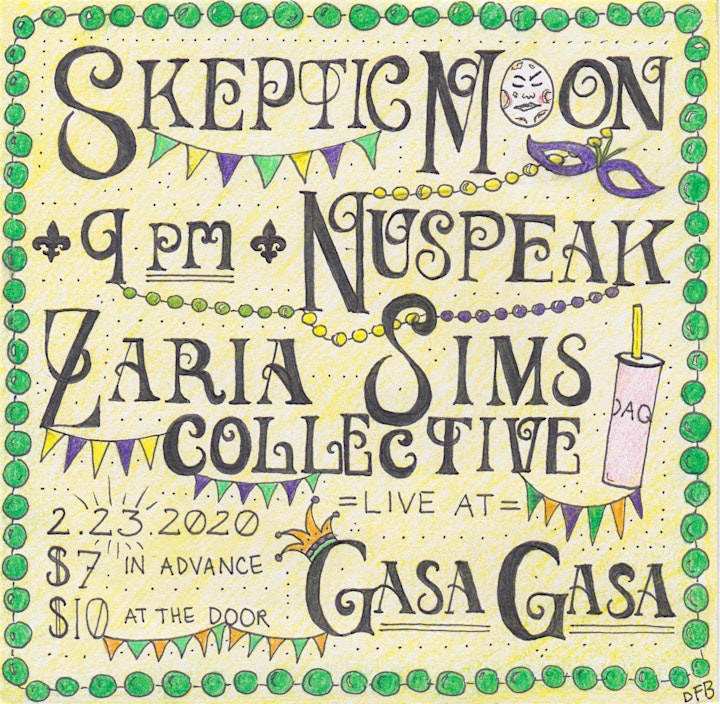 SKEPTIC MOON
9 PM NUSPEAK
ZARIA SIMS
COLLECTIVE
DAQ
=LIVE AT=
2.23.2020
$7 IN ADVANCE
$10 AT THE DOOR
GASA GASA
DFB